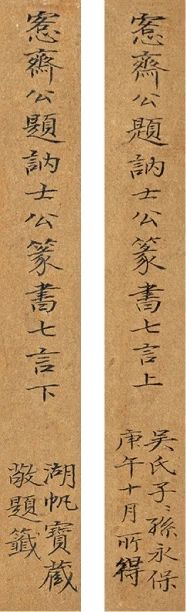 愙齋公題訥士公篆書七言上
吳氏子〻孫永保
庚午十月所得
愙齋公題訥士公篆書七言下
湖帆寶藏
敬題籤